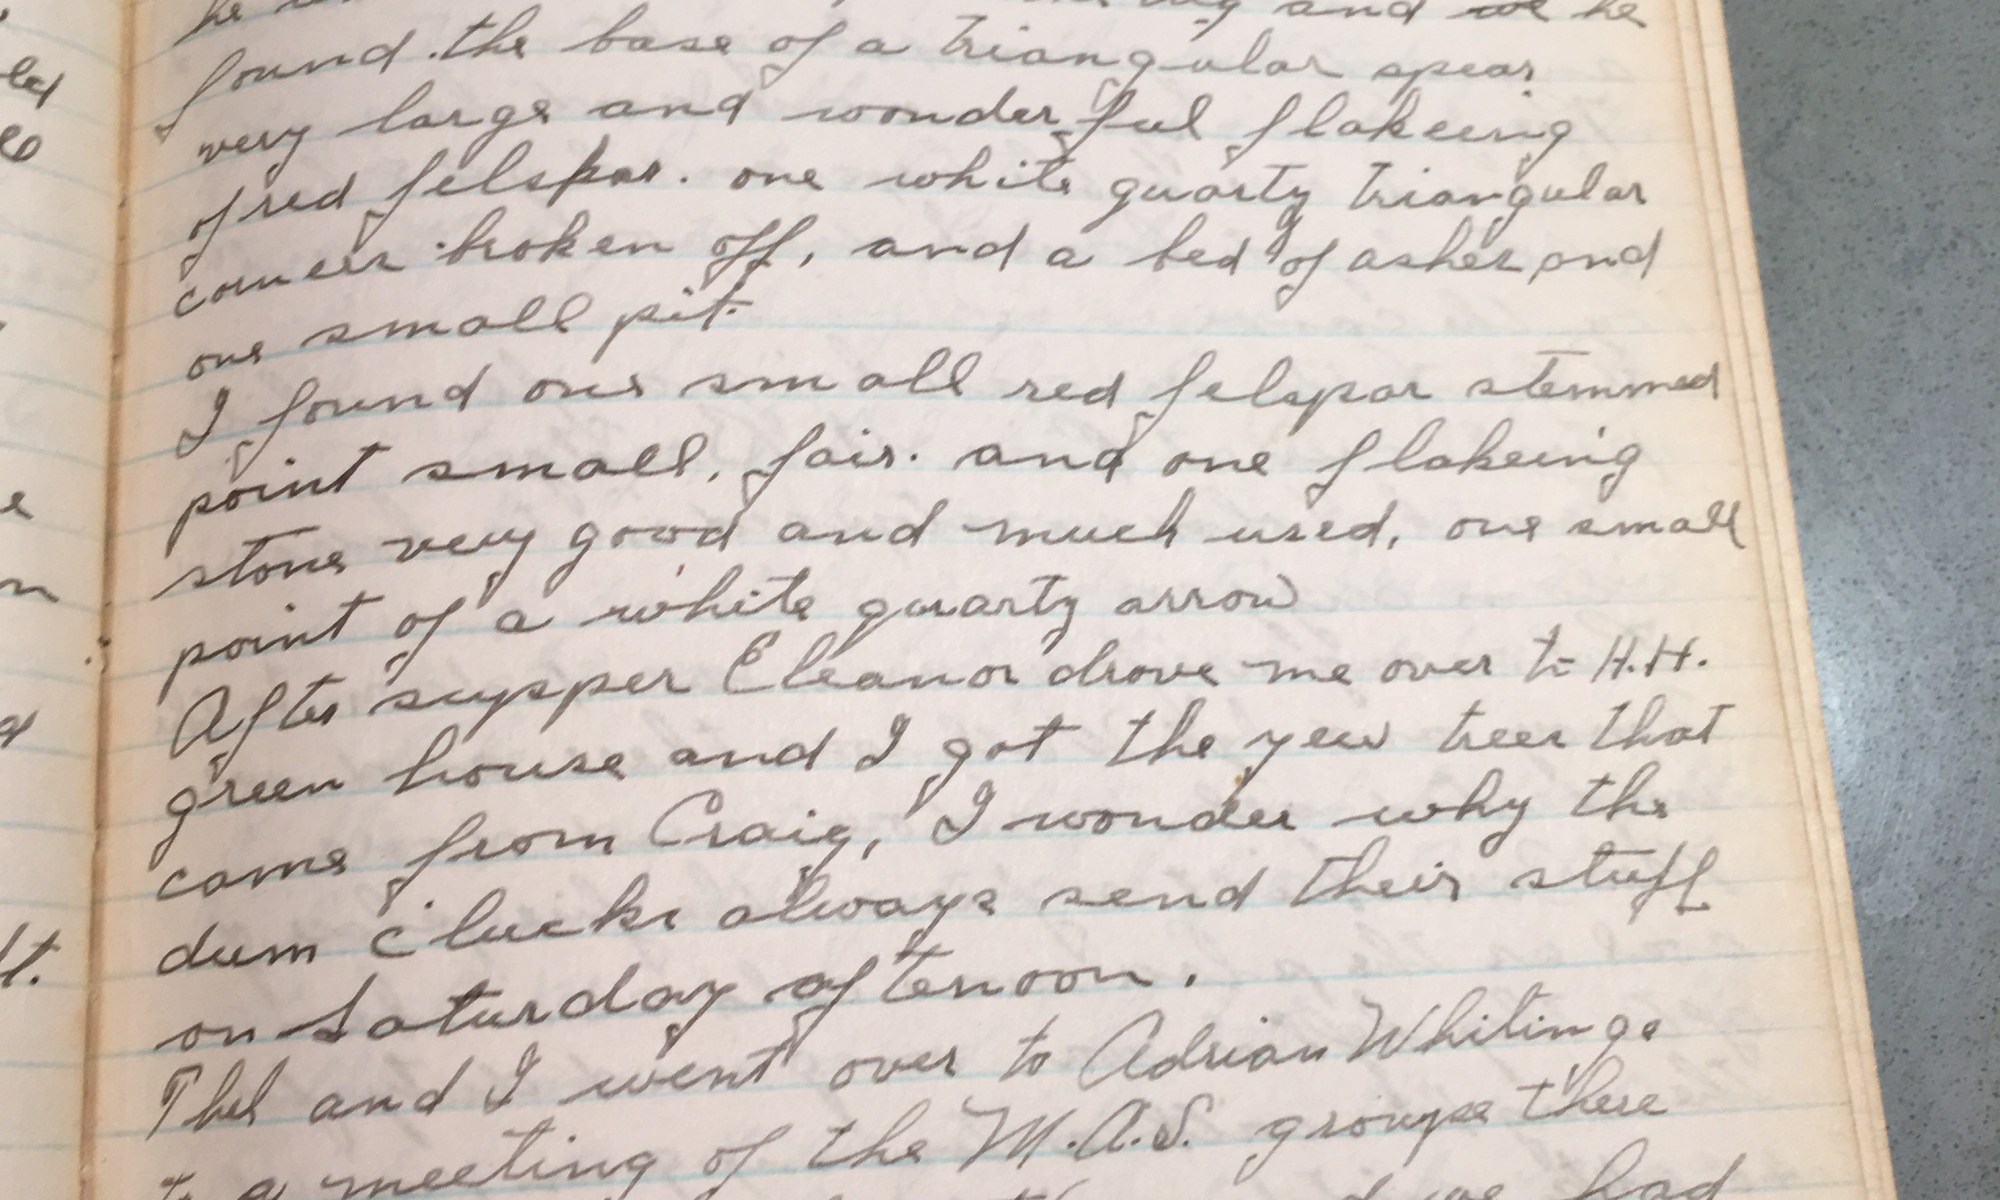 and we he
found the base of a triangular spear
very large and wonderful flakeing
of red felspar. one white quartz triangular
corner broken off, and a bed of ashes and
one small pit.
I found one small red felspar stemmed
point small, fair. and one flakeing
stone very good and much used, one small
point of a white quartz arrow
After supper Eleanor drove me over to H.H.
green house and I got the yew trees that
came from Craig, I wonder why the
dum clucks always send their stuff
on Saturday afternoon.
Thel and I went over to Adrian Whitings
to a meeting of the M.A.S. groupe there
we had